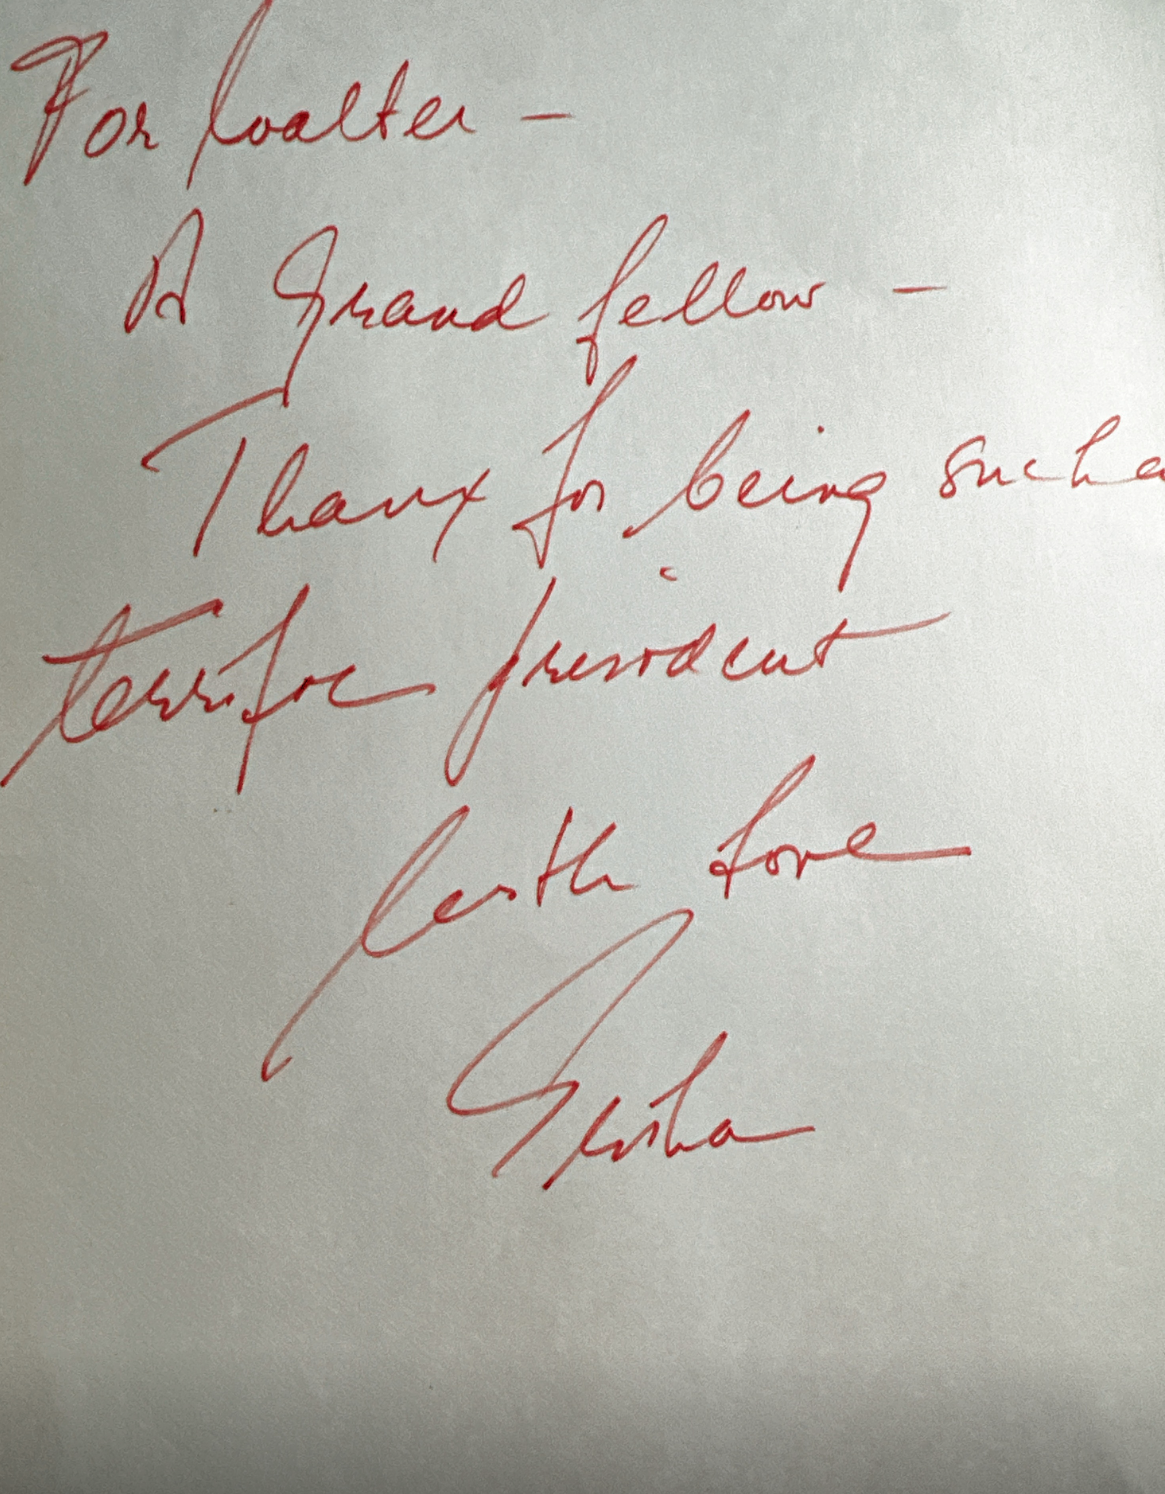 For Walter –
A Grand fellow –
Thanx for being such a
terrific president
With Love